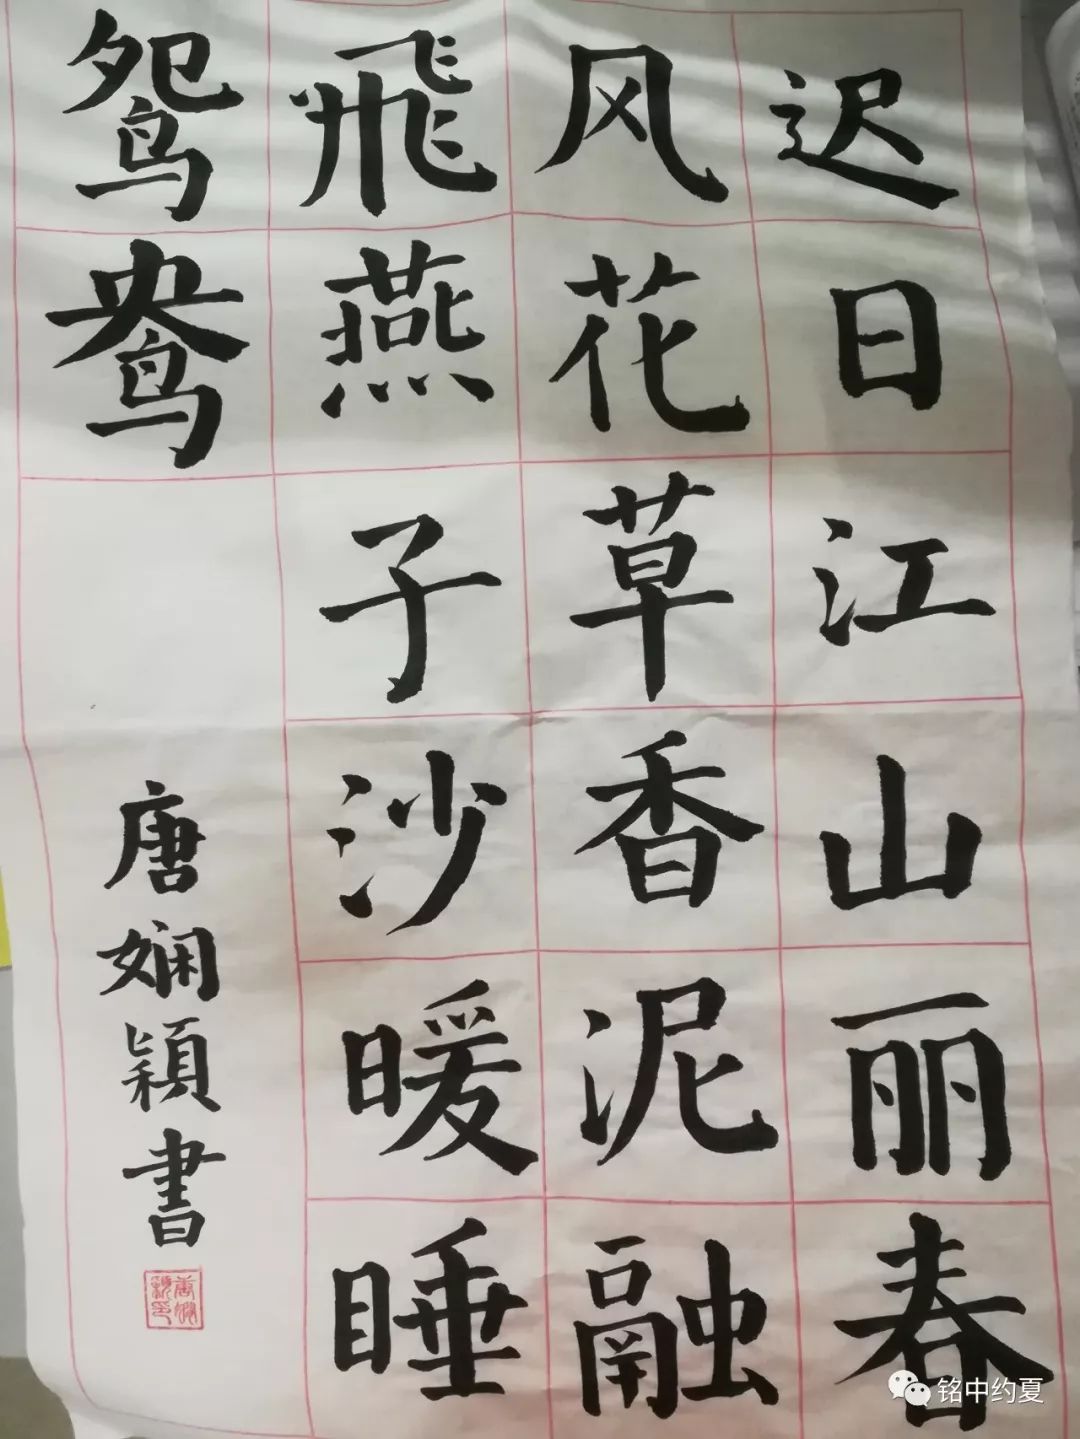 迟日江山丽春
风花草香泥融
飛燕子沙暖睡
鸳鸯
唐娴穎書
铭中约夏